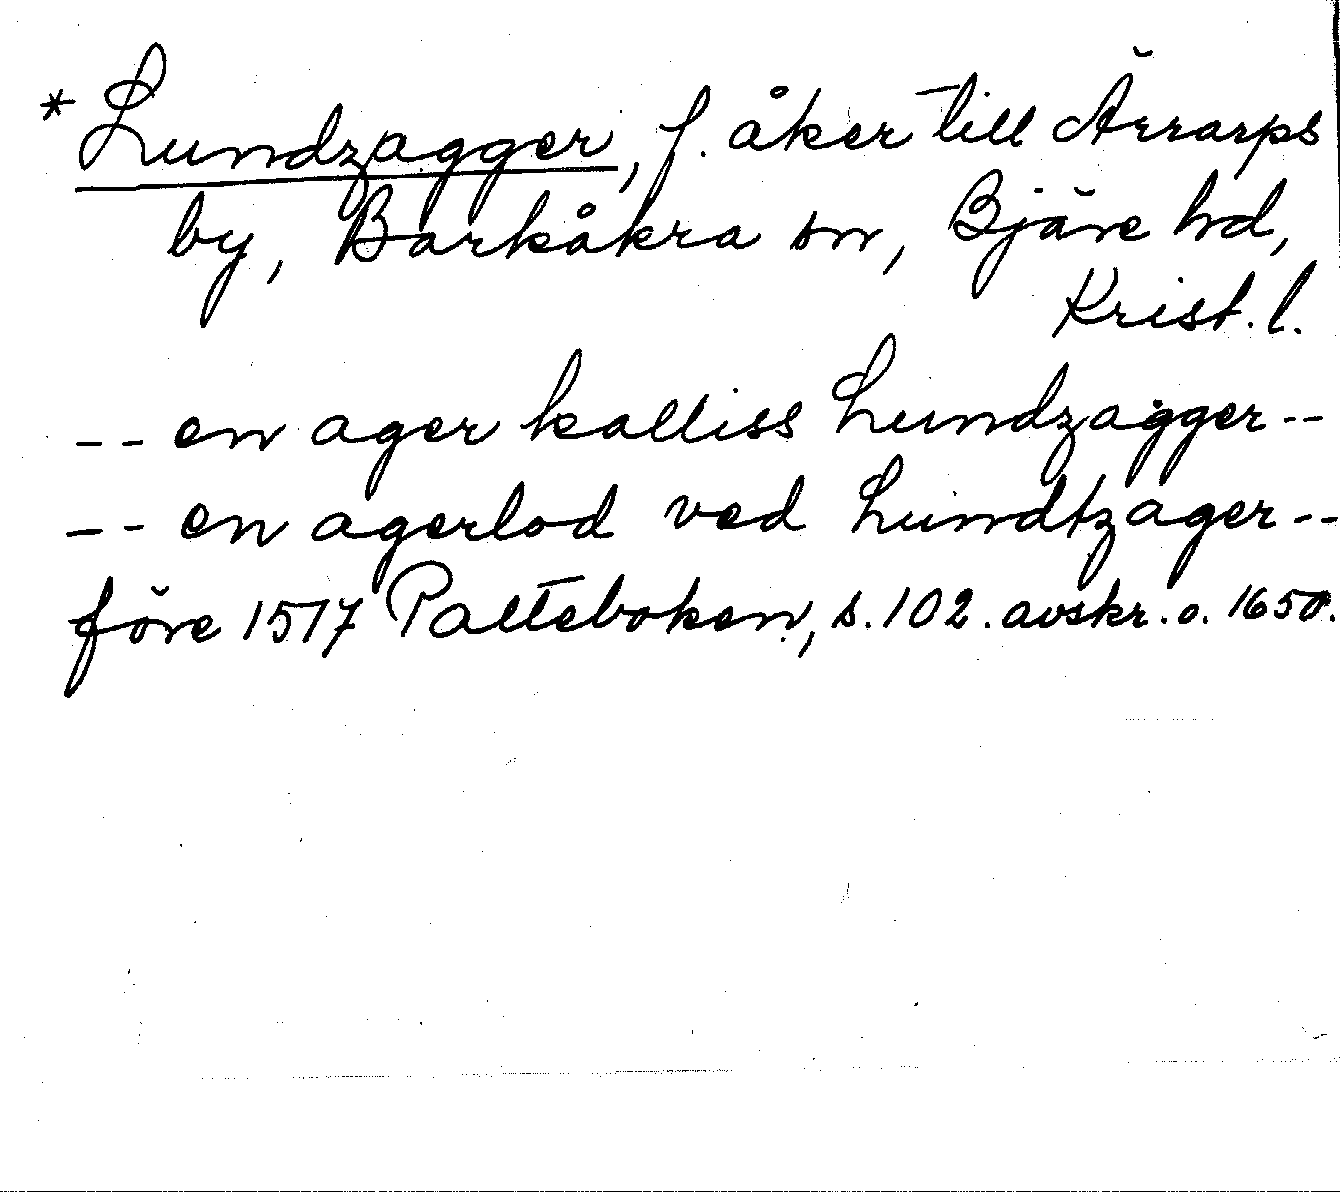 * Lundzagger, f. åker till Ärrarps
by, Barkåkra sn, Bjäre hd,
Krist. l.
-- en ager kalliss Lundzagger --
-- en agerlod ved Lundtzager --
före 1517 Palteboken, s. 102. avskr. o. 1650.